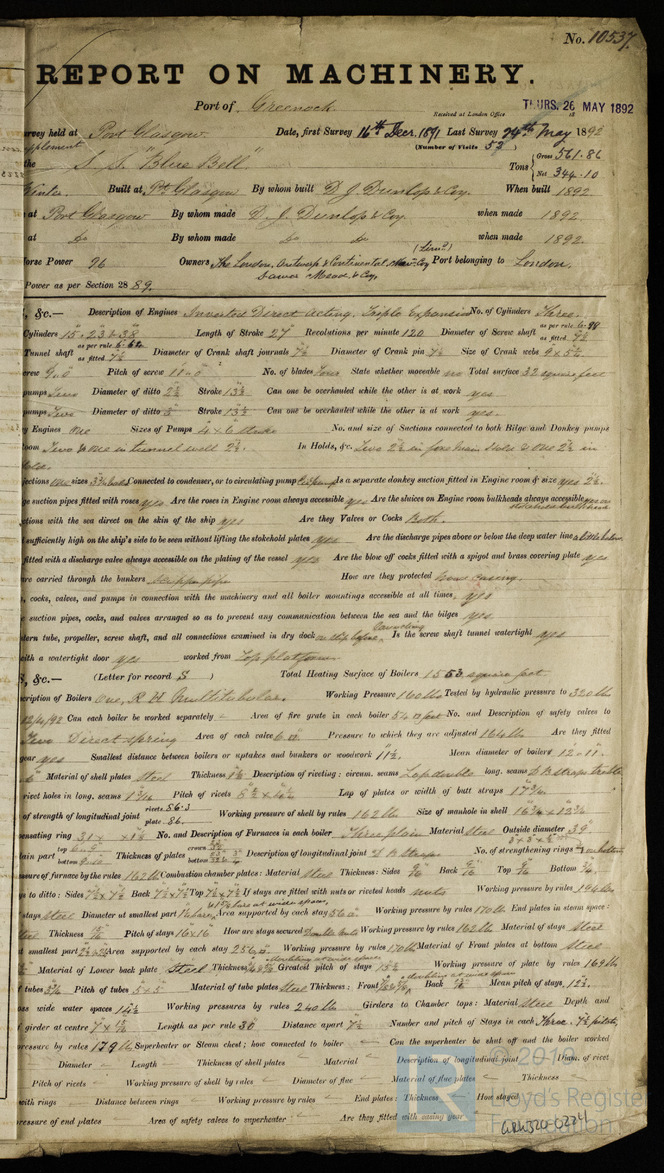 No. 10537.
REPORT ON MACHINERY.
Port of Greenock
Received at London Office THURS. 26 MAY 1892
urvey held at Port Glasgow. Date, first Survey 16th Decr. 1891 Last Survey 24th May 1892
(Number of Visits 53)
the S. S. "Blue Bell" Tons { Gross 561.86
Net 344.10
Built at Pt Glasgow By whom built D. J. Dunlop & Coy. When built 1892
at Port Glasgow By whom made D. J. Dunlop & Coy. when made 1892
at Do By whom made Do Do when made 1892.
orse Power 96 Owners The London, Antwerp & Continental Coy (Limd) Port belonging to London.
Power as per Section 28 89.
&c.— Description of Engines Inverted Direct acting. Triple Expansion No. of Cylinders Three.
Cylinders Length of Stroke 27" Revolutions per minute 120 Diameter of Screw shaft as per rule as fitted
Tunnel shaft as per rule as fitted 7½ Diameter of Crank shaft journals 7½ Diameter of Crank pin 7½ Size of Crank webs 9 x 5½
crew 9.0 Pitch of screw 11.0 No. of blades Four State whether moveable no Total surface 32 square feet
umps Two Diameter of ditto 2½ Stroke 13½ Can one be overhauled while the other is at work yes
umps Two Diameter of ditto 3" Stroke 13½ Can one be overhauled while the other is at work yes.
y Engines one Sizes of Pumps 4 x 6 stroke No. and size of Suctions connected to both Bilge and Donkey pumps
oom Two & one in tunnel well 2½. In Holds, &c. Two 2½ in fore main hold & one 2½ in
jections one sizes Connected to condenser, or to circulating pump Is a separate donkey suction fitted in Engine room & size yes 2½.
ge suction pipes fitted with roses yes Are the roses in Engine room always accessible yes Are the sluices on Engine room bulkheads always accessible
ctions with the sea direct on the skin of the ship yes Are they Valves or Cocks Both.
sufficiently high on the ship's side to be seen without lifting the stokehold plates yes Are the discharge pipes above or below the deep water line a little below
fitted with a discharge valve always accessible on the plating of the vessel yes Are the blow off cocks fitted with a spigot and brass covering plate yes
are carried through the bunkers How are they protected casing.
, cocks, valves, and pumps in connection with the machinery and all boiler mountings accessible at all times. yes
suction pipes, cocks, and valves arranged so as to prevent any communication between the sea and the bilges yes
tern tube, propeller, screw shaft, and all connections examined in dry dock on slip before launching Is the screw shaft tunnel watertight yes
with a watertight door yes worked from Top platform
&c.— (Letter for record S) Total Heating Surface of Boilers 1553 square feet
scription of Boilers One, R H Multitubular. Working Pressure 160 lbs Tested by hydraulic pressure to 320 lb
12/4/92 Can each boiler be worked separately Area of fire grate in each boiler 54 No. and Description of safety valves to
Two Direct spring Area of each valve Pressure to which they are adjusted 164 lb Are they fitted
gear yes Smallest distance between boilers or uptakes and bunkers or woodwork 11½. Mean diameter of boilers 12.11"
Material of shell plates Steel Thickness Description of riveting: circum. seams Lap double long. seams D. B straps treble
rivet holes in long. seams 1 3/16 Pitch of rivets Lap of plates or width of butt straps
of strength of longitudinal joint rivets 86.3 plate 86. Working pressure of shell by rules 162 lb Size of manhole in shell
ensating ring No. and Description of Furnaces in each boiler Three plain Material Steel Outside diameter 39"
lain part top bottom Thickness of plates crown bottom Description of longitudinal joint D B straps No. of strengthening rings
essure of furnace by the rules 162 lb Combustion chamber plates: Material Steel Thickness: Sides 9/16 Back 9/16 Top 9/16 Bottom ¾
ys to ditto: Sides 7½ x 7½ Back 7½ x 7½ Top 7½ x 7½ If stays are fitted with nuts or riveted heads nuts Working pressure by rules 194 lbs
stays Steel Diameter at smallest part Area supported by each stay 56 Working pressure by rules 170 lb End plates in steam space:
Steel Thickness Pitch of stays 16 x 16 How are stays secured Double nuts Working pressure by rules 162 lb Material of stays Steel
at smallest part Area supported by each stay 256 Working pressure by rules 170 lb Material of Front plates at bottom Steel
Material of Lower back plate Steel Thickness Greatest pitch of stays 15½ Working pressure of plate by rules 169 lb
f tubes Pitch of tubes 5 x 5 Material of tube plates Steel Thickness: Front Back Mean pitch of stays 12½.
oss wide water spaces 14½ Working pressures by rules 240 lb Girders to Chamber tops: Material Steel Depth and
f girder at centre Length as per rule 30 Distance apart 7½ Number and pitch of Stays in each Three. 7½ pitch
pressure by rules 179 lb Superheater or Steam chest; how connected to boiler Can the superheater be shut off and the boiler worked
Diameter Length Thickness of shell plates Material Description of longitudinal joint Diam. of rivet
Pitch of rivets Working pressure of shell by rules Diameter of flue Material of flue plates Thickness
with rings Distance between rings Working pressure by rules End plates: Thickness How stayed
pressure of end plates Area of safety valves to superheater Are they fitted with easing gear
Lloyd's Register
Foundation
GRK320-0224